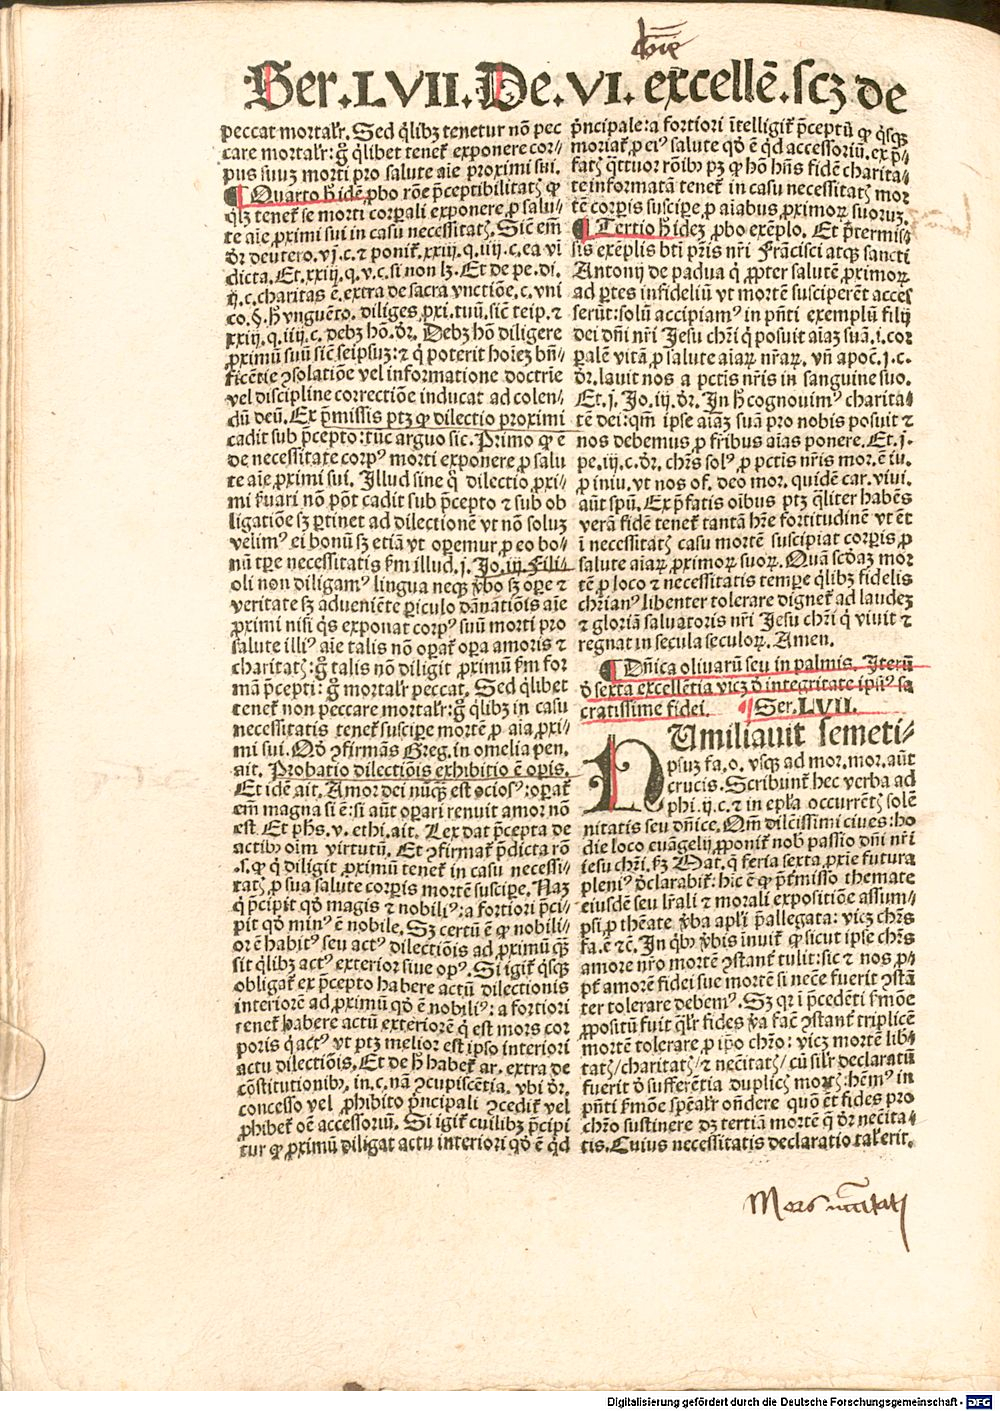 Ser.LVII.De.VI.excellē.scꝫ de
peccat mortalr̄. Sed q̄libꝫ tenetur nō pec
care mortalr̄: gͦ q̄libet tenet᷑ exponere cor⸗
pus suuꝫ morti pro salute aīe proximi sui.
¶ Quarto h̄ idē ꝓbo rōe p̄ceptibilitatꝭ qꝛ
q̄lꝫ tenet᷑ se morti corꝑali exponere ꝓ salu⸗
te aīe ꝓximi sui in casu necessitatꝭ. Sic em̄
dr̄ deutero. vj. c. ⁊ ponit᷑ .xxiij. q. iiij. c. ea vi
dicta. Et .xxiij. q. v. c. si non lꝫ. Et de pe. di.
ij. c. charitas ē. extra de sacra vnctiōe. c. vni
co. §. h̄ vnguēto. diliges ꝓxi. tuū. sicut teip. ⁊
xxiij. q. iiij. c. debꝫ hō. dr̄. Debꝫ hō diligere
ꝓximū suū sicut seipsuꝫ: ⁊ q̄ poterit hoīeꝫ bn̄⸗
ficētie ꝯsolatiōe vel informatione doctrīe
vel discipline correctiōe inducat ad colen⸗
dū deū. Ex p̄missis ptꝫ ꝙ dilectio proximi
cadit sub p̄cepto: tūc arguo sic. Primo qꝛ ē
de necessitate corpꝰ morti exponere ꝓ salu
te aīe ꝓximi sui. Illud sine q̄ dilectio ꝓxi⸗
mi ẜuari nō pōt cadit sub p̄cepto ⁊ sub ob
ligatiōe sꝫ ꝑtinet ad dilectionē vt nō soluꝫ
velimꝰ ei bonū sꝫ etiā vt oꝑemur ꝓ eo bo⸗
nū tꝑe necessitatis ẜm illud. j. Jo. iij. Fili⸗
oli non diligamꝰ lingua neqꝫ v̄bo sꝫ oꝑe ⁊
veritate sꝫ adueniēte ꝑiculo dānatiōis aīe
ꝓximi nisi q̄s exponat corpꝰ suū morti pro
salute illiꝰ aīe talis nō oꝑat᷑ oꝑa amoris ⁊
charitatꝭ: gͦ talis nō diligit ꝓximū ẜm for
mā p̄cepti: gͦ mortalr̄ peccat. Sed q̄libet
tenet᷑ non peccare mortalr̄: gͦ q̄libꝫ in casu
necessitatis tenet᷑ suscipe mortē ꝓ aīa ꝓxi⸗
mi sui. Qd̄ ꝯfirmās Greg. in omelia pen.
ait. Probatio dilectiōis exhibitio ē oꝑis.
Et idē ait. Amor dei nūqꝫ est ociosꝰ: oꝑat᷑
em̄ magna si ē: si aūt oꝑari renuit amor nō
est. Et ph̄s. v. ethi. ait. Lex dat p̄cepta de
actibꝰ oīm virtutū. Et ꝯfirmat᷑ p̄dicta rō
.s. ꝙ q̄ diligit ꝓximū tenet᷑ in casu necessi⸗
tatꝭ ꝓ sua salute corꝑis mortē suscipe. Naꝫ
q̄ p̄cipit qd̄ magis ⁊ nobiliꝰ: a fortiori p̄ci⸗
pit qd̄ minꝰ ē nobile. Sꝫ certū ē ꝙ nobili⸗
or ē habitꝰ seu actꝰ dilectiōis ad ꝓximū qꝫ
sit q̄libꝫ actꝰ exterior siue opꝰ. Si igit᷑ q̄sqꝫ
obligat᷑ ex p̄cepto habere actū dilectionis
interiorē ad ꝓximū qd̄ ē nobiliꝰ: a fortiori
tenet᷑ habere actū exteriorē q̄ est mors cor
poris q̄ actꝰ vt ptꝫ melior est ipso interiori
actu dilectiōis. Et de h̄ habet᷑ ar. extra de
cōstitutionibꝰ. in. c. nā ꝯcupiscētia. vbi dr̄.
concesso vel ꝓhibito p̄ncipali ꝯcedit᷑ vel
ꝓhibet᷑ oē accessoriū. Si igit᷑ cuilibꝫ p̄cipi
tur ꝙ ꝓximū diligat actu interiori qd̄ ē q̄d
p̄ncipale: a fortiori ītelligit᷑ p̄ceptū ꝙ q̄sqꝫ
moriat᷑ ꝓ eiꝰ salute qd̄ ē q̄d accessoriū. ex p̄⸗
fatꝭ q̄ttuor rōibꝰ pꝫ ꝙ hō hn̄s fidē charita⸗
te informatā tenet᷑ in casu necessitatꝭ mor
tē corꝑis suscipe ꝓ aīabus ꝓximoꝝ suoruꝫ.
¶ Tertio h̄ ideꝫ ꝓbo exēplo. Et p̄termis⸗
sis exēplis bt̄i pr̄is nr̄i Frācisci atqꝫ sancti
Antonij de padua q̄ ꝓpter salutē ꝓximoꝝ
ad ꝑtes infideliū vt mortē susciperēt acces
serūt: solū accipiamꝰ in pn̄ti exemplū filij
dei dn̄i nr̄i Jesu chr̄i q̄ posuit aīaꝫ suā. i. cor
ꝑalē vitā ꝓ salute aīaꝝ nr̄aꝝ. vn̄ apoc̄. j. c.
dr̄. lauit nos a pctīs nr̄is in sanguine suo.
Et. j. Jo. iij. dr̄. In h̄ cognouimꝰ charita⸗
tē dei: qm̄ ipse aīaꝫ suā pro nobis posuit ⁊
nos debemus ꝓ fr̄ibus aīas ponere. Et. j.
pe. iij. c. dr̄. chr̄s solꝰ ꝓ pctīs nr̄is mor. ē iu.
ꝓ iniu. vt nos of. deo mor. quidē car. viui.
aūt spū. Ex p̄fatis oībus ptꝫ q̄liter habēs
verā fidē tenet᷑ tantā hr̄e fortitudinē vt ēt
ī necessitatꝭ casu mortē suscipiat corꝑis ꝓ
salute aīaꝝ ꝓximoꝝ suoꝝ. Quā scd̄aꝫ mor
tē ꝓ loco ⁊ necessitatis tempe q̄libꝫ fidelis
chr̄ianꝰ libenter tolerare dignet᷑ ad laudeꝫ
⁊ gloriā saluatoris nr̄i Jesu chr̄i q̄ viuit ⁊
regnat in secula seculoꝝ. Amen.
¶ Dn̄ica oliuarū seu in palmis. Iterū
d̄ sexta excellētia vicꝫ d̄ integritate ipsiꝰ sa
cratissime fidei. ¶ Ser. LVII.
HUmiliauit semeti⸗
psuꝫ fa. o. vsqꝫ ad mor. mor. aūt
crucis. Scribunt᷑ hec verba ad
phi. ij. c. ⁊ in epl̄a occurrētꝭ solē
nitatis seu dn̄ice. Qm̄ dilc̄issimi ciues: ho
die loco euāgelij ꝓponit᷑ nobꝭ passio dn̄i nr̄i
iesu chr̄i. ẜꝫ Mat. q̄ feria sexta ꝓxīe futura
pleniꝰ d̄clarabit᷑: hic ē ꝙ p̄t᷑misso themate
eiusdē seu lr̄ali ⁊ morali expositiōe assum⸗
psi ꝓ thēate v̄ba apl̄i p̄allegata: vicꝫ chr̄s
fa. ē ⁊c̄. In q̄bꝰ v̄bis inuit᷑ ꝙ sicut ipse chr̄s
amore nr̄o mortē ꝯstant᷑ tulit: sic ⁊ nos ꝓ⸗
pt᷑ amorē fidei sue mortē si nec̄e fuerit ꝯstā
ter tolerare debemꝰ. Sꝫ qꝛ ī p̄cedēti ẜmōe
ꝓpositū fuit q̄lr̄ fides v̄a fac̄ ꝯstant᷑ triplicē
mortē tolerare ꝓ ip̄o chr̄o: vicꝫ mortē lib⸗
tatꝭ/charitatꝭ/⁊ necītatꝭ/cū silr̄ declaratū
fuerit d̄ sufferētia duplicꝭ mortꝭ: hēmꝰ in
pn̄ti ẜmōe spēalr̄ on̄dere quō ēt fides pro
chr̄o sustinere dꝫ tertiā mortē q̄ dr̄ necīta⸗
tis. Cuius necessitatis declaratio talr̄ erit.
Mors
Digitalisierung gefördert durch die Deutsche Forschungsgemeinschaft - DFG